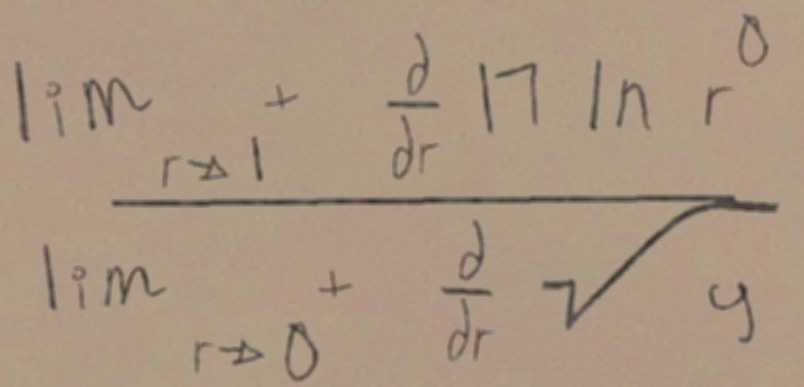 lim r→1⁺ d/dr 17 ln r⁰
lim r→0⁺ d/dr √y